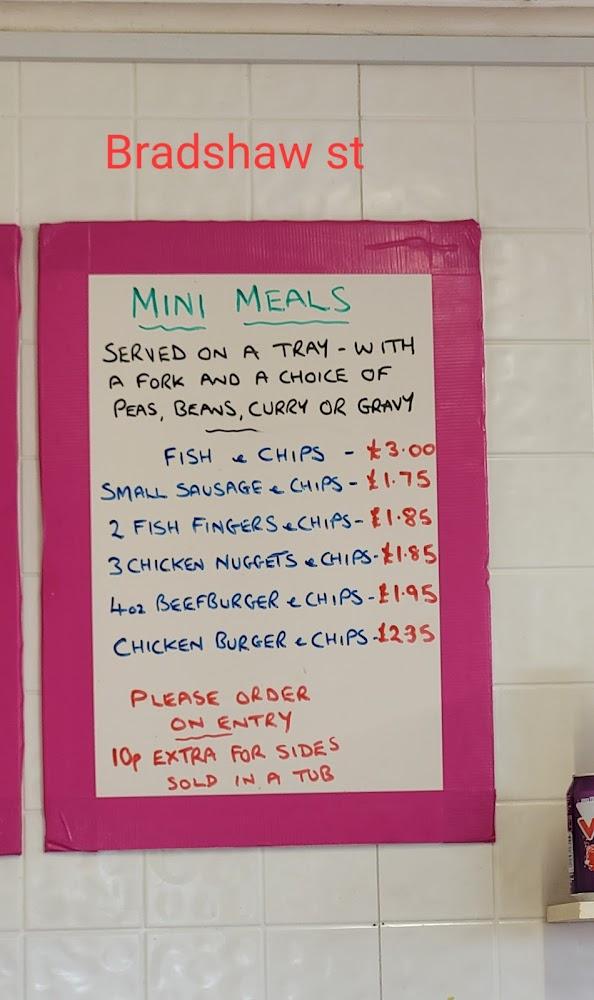 Bradshaw st
MINI MEALS
SERVED ON A TRAY - WITH
A FORK AND A CHOICE OF
PEAS, BEANS, CURRY OR GRAVY
FISH & CHIPS - £3.00
SMALL SAUSAGE & CHIPS - £1.75
2 FISH FINGERS & CHIPS - £1.85
3 CHICKEN NUGGETS & CHIPS - £1.85
4oz BEEFBURGER & CHIPS - £1.95
CHICKEN BURGER & CHIPS - £235
PLEASE ORDER
ON ENTRY
10p EXTRA FOR SIDES
SOLD IN A TUB